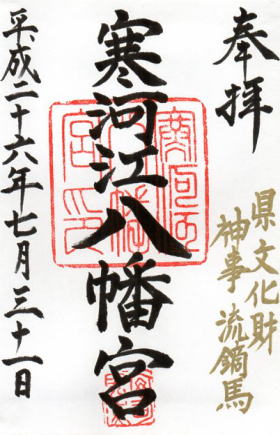 奉拝
県文化財
神事 流鏑馬
寒河江八幡宮
平成二十六年七月三十一日